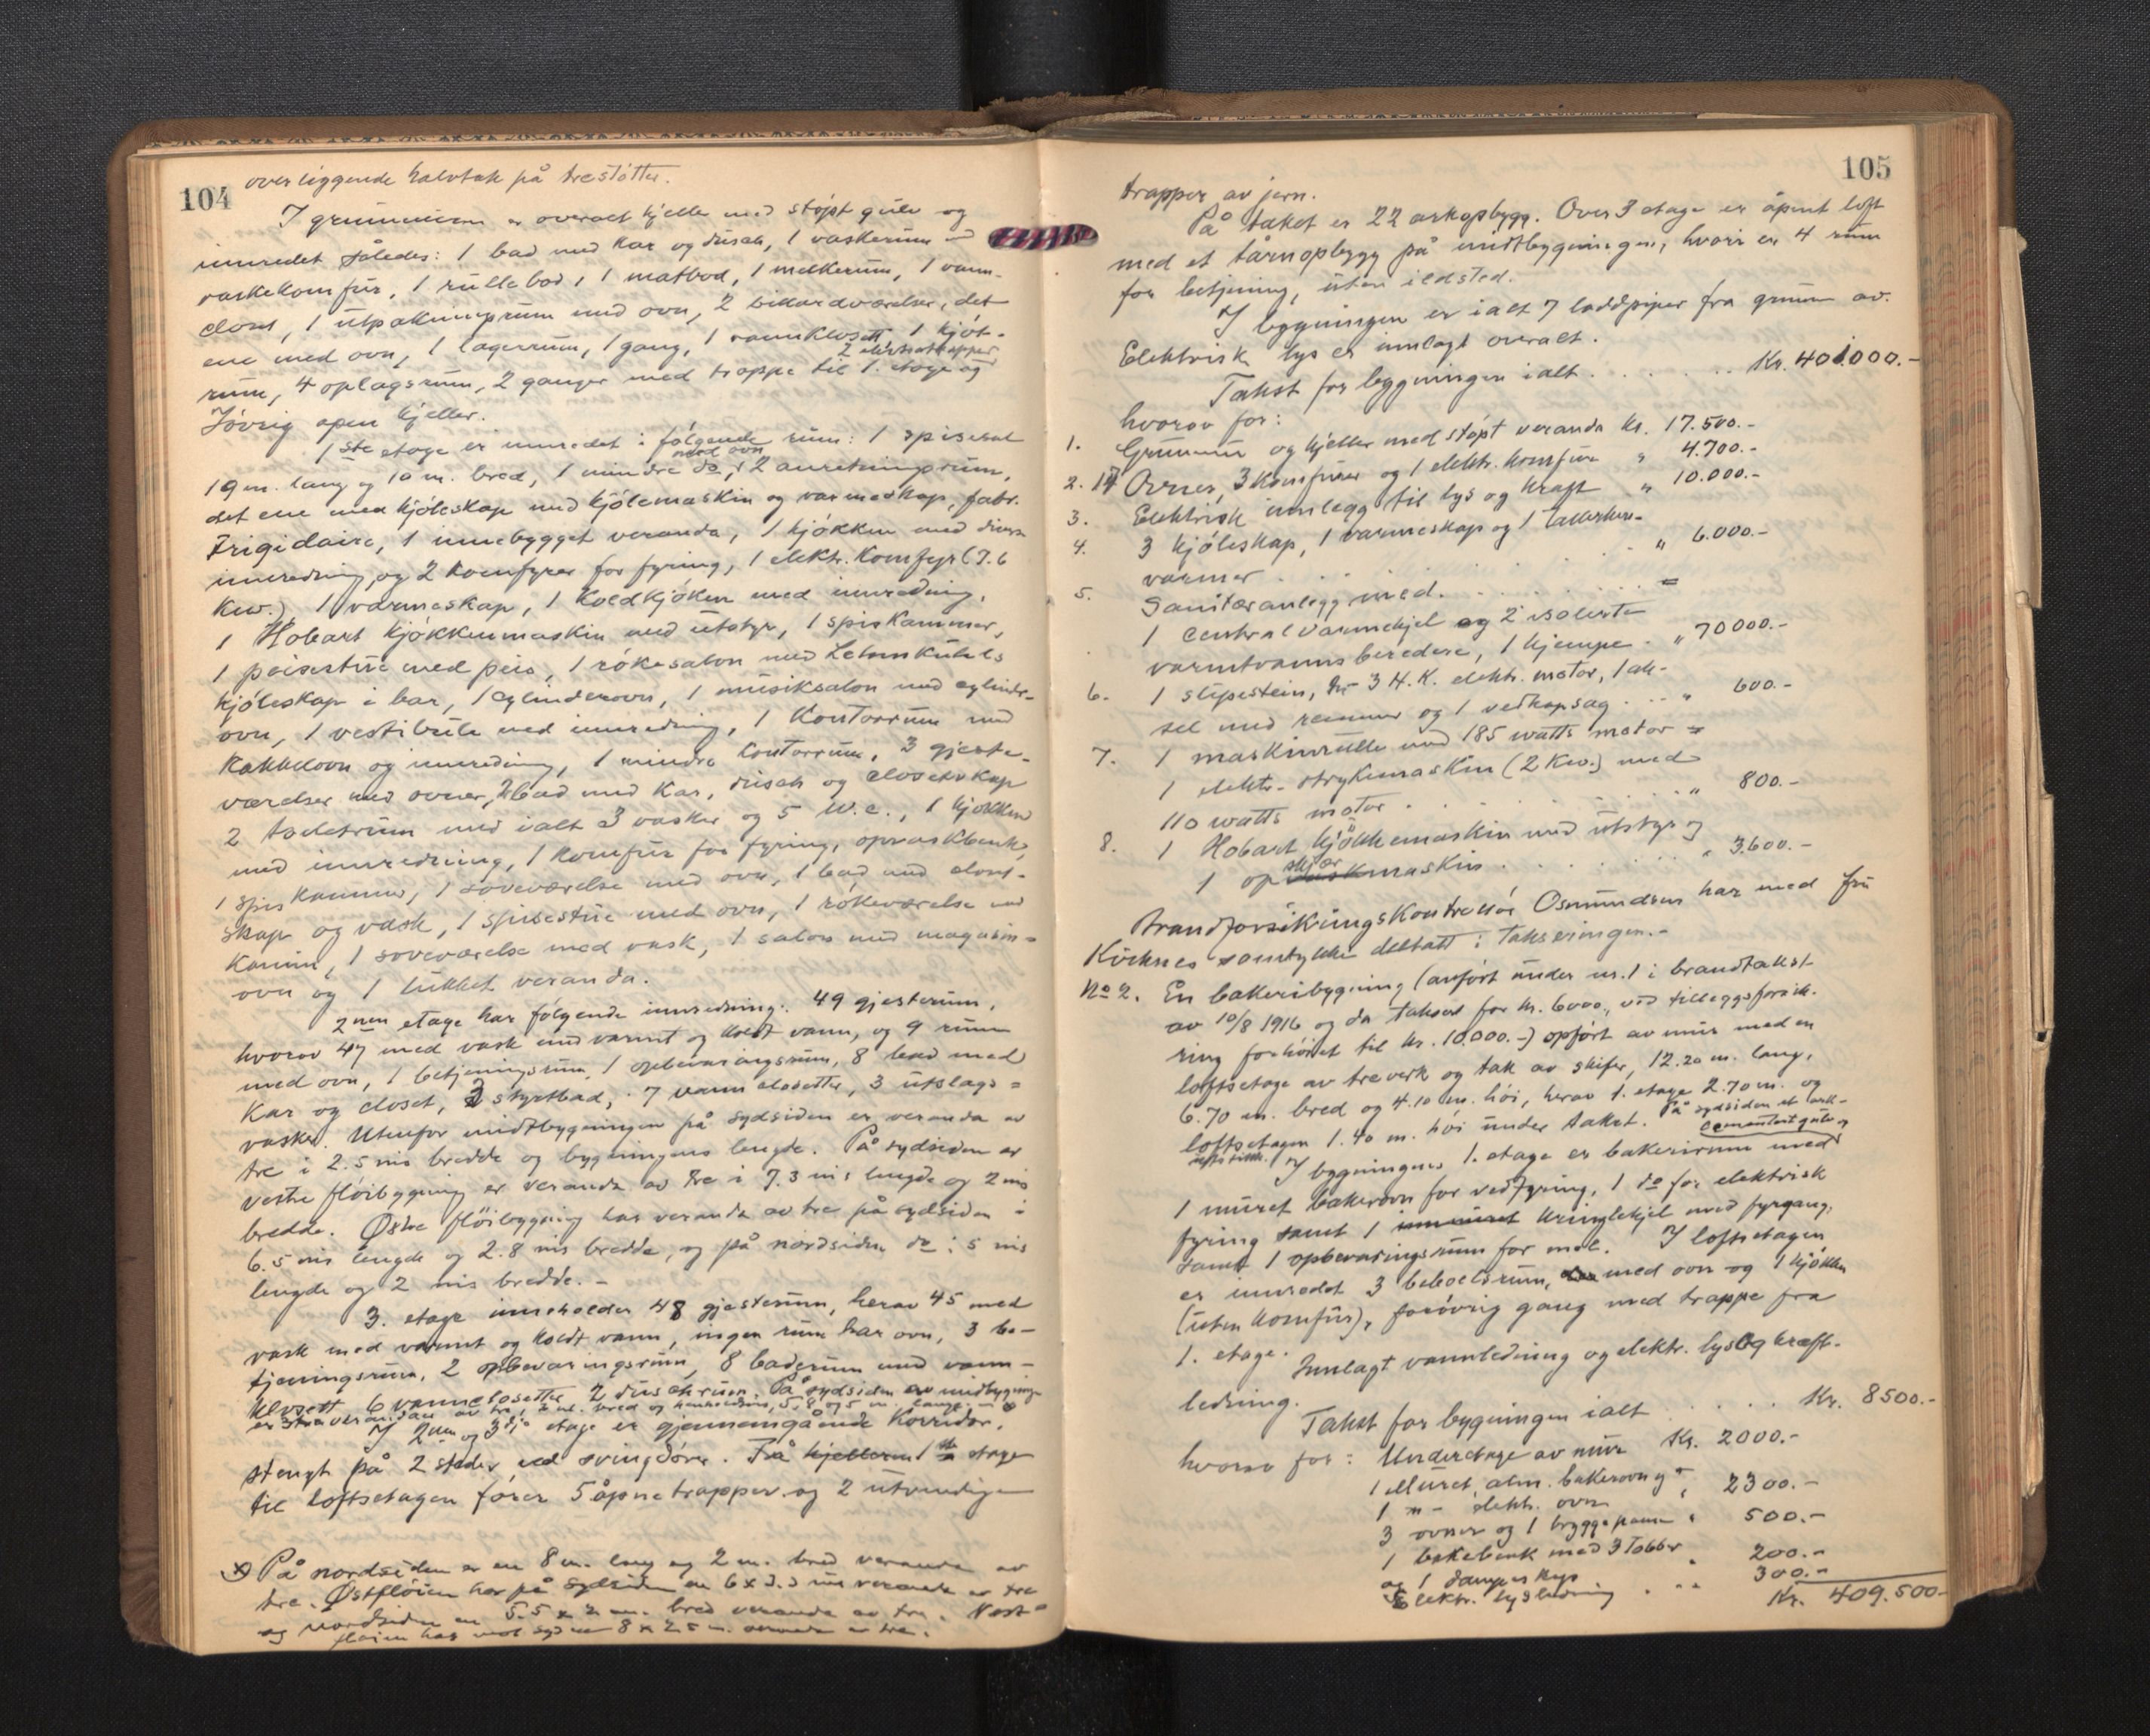 104
overliggende halvtak på trestøtter.
I grunnmuren er overalt kjeller med støpt gulv og
innredet således: 1 bad med kar og dusch, 1 vaskerum med
vaskekomfur, 1 rullebod, 1 matbod, 1 melkerum, 1 vann-
closet, 1 utpakningsrum med ovn, 2 værelser, det
ene med ovn, 1 lagerrum, 1 gang, 1 vannklosett, 1 kjøt-
rum, 4 oplagsrum, 2 ganger med trappe til 1. etage og
Iøvrig open kjeller.
1ste etage er innredet i følgende rum: 1 spisesal
med ovn
19 m. lang og 10 m. bred, 1 mindre do, 2 anretningsrum,
det ene med kjøleskap med kjølemaskin og varmeskap, fabr.
Frigidaire, 1 innebygget veranda, 1 kjøkken med divers
innredning og 2 komfyrer for fyring, 1 elektr. komfyr (7.6
kw.) 1 varmeskap, 1 koldkjøken med innredning,
1 Hobart kjøkkenmaskin med utstyr, 1 spiskammer,
1 peisestue med peis, 1 røkesalon med
kjøleskap i bar, 1 cylinderovn, 1 musiksalon med cylinder-
ovn, 1 vestibule med innredning, 1 Kontorrum med
kakkelovn og innredning, 1 mindre kontorrum, 3 gjeste-
værelser med ovner, bad med kar, dusch og closetskap
2 toiletrum med ialt 3 vasker og 5 W.C., 1 kjøkken
med innredning, 1 komfur for fyring, opvaskbenk,
1 spiskammer, 1 soveværelse med ovn, 1 bad med closet-
skap og vask, 1 spisestue med ovn, 1 røkeværelse med
kamin, 1 soveværelse med vask, 1 salon med magasin-
ovn og 1 lukket veranda.
2nen etage har følgende innredning: 49 gjesterum,
hvorav 47 med vask med varmt og koldt vann, og 9 rum
med ovn, 1 betjeningsrum, 1 opbevaringsrum, 8 bad med
kar og closet, 3 styrtbad, 7 vannclosetter, 3 utslags-
vasker. Utenfor midtbygningen på sydsiden er veranda av
tre i 2.5 ms bredde og bygningens lengde. På sydsiden av
vestre fløibygning er veranda av tre i 7.3 ms lengde og 2 ms
bredde. Østre fløibygning har veranda av tre på sydsiden i
6.5 ms lengde og 2.8 ms bredde, og på nordsiden do i 5 ms
lengde og 2 ms bredde. -
3. etage inneholder 48 gjesterum, herav 45 med
vask med varmt og koldt vann, ingen rum har ovn, 3 be-
tjeningsrum, 2 opbevaringsrum, 8 baderum med vann-
klosett 6 vannclosetter 2 duschrum. På sydsiden av midtbygningen
er 3 tre verandaer av tre, 2 m. bred og henholdsvis 5, 8 og 5 m. lange. -
I 2nen og 3dje etage er gjennemgående korridor,
stengt på 2 steder ved svingdører. Fra kjelleren 1ste etage
til loftsetagen fører 5 åpne trapper og 2 utvendige
x) På nordsiden er en 8 m. lang og 2 m. bred veranda av
tre. Østfløien har på sydsiden en 6 x 3.5 ms veranda av tre
og nordsiden en 5.5 x 2 m. bred veranda av tre. Vest-
fløien har mot syd en 8 x 2.5 m. veranda av tre.
105
trapper av jern.
På taket er 22 arkopbygg. Over 3 etage er åpent loft
med et tårnopbygg på midtbygningen, hvori er 4 rum
for betjening, uten ildsted.
I bygningen er ialt 7 loddpiper fra grunn av.
Elektrisk lys er innlagt overalt.
Takst for bygningen ialt . . . . . . . Kr. 401000.-
hvorav for:
1. Grunnmur og kjeller med støpt veranda Kr. 17.500.-
2. 14 Ovner, 3 komfurer og 1 elektr. komfur " 4.700.-
3. Elektrisk innlegg til lys og kraft " 10.000.-
4. 3 kjøleskap, 1 varmeskap og 1 tallerken-
varmer . . . . . " 6.000.-
5. Sanitæranlegg med . . . . .
1 centralvarmekjel og 2 isolerte
varmtvannsberedere, 1 kjempe - " 70000.-
6. 1 slipestein, 3 H.K. elektr. motor, 1 ak-
sel med remmer og 1 vedkapsag . . . " 600.-
7. 1 maskinrulle med 185 watts motor
1 elektr. strykemaskin (2 Kw.) med
110 watts motor . . . . . . " 800.-
8. 1 Hobart kjøkkemaskin med utstyr og
1 opskjærmaskin . . . . . " 3.600.-
Brandforsikringskontrollør Osmundsen har med fru
Kviknes samtykke deltatt i takseringen.-
No 2. En bakeribygning (anført under nr. 1 i brandtakst
av 10/8 1916 og da taksert for kr. 6000., ved tilleggsforsik-
ring forhøiet til kr. 10.000.-) opført av mur med en
loftsetage av treverk og tak av skifer, 12.20 m. lang,
6.70 m. bred og 4.10 m. høi, herav 1. etage 2.70 m. og
loftsetagen 1.40 m. høi under taket. På sydsiden et ark-
cementert gulv og
I bygningens 1. etage er bakerirum med
1 muret bakerovn for vedfyring, 1 do for elektrisk
fyring samt 1 innmuret kringlekjel med fyrgang,
samt 1 opbevaringsrum for mel. I loftsetagen
er innredet 3 beboelsrum, med ovn og 1 kjøkken
(uten komfur), forøvrig gang med trappe fra
1. etage.
Innlagt vannledning og elektr. lys og kraft-
ledning.
Takst for bygningen ialt . . . . . Kr. 8500.-
hvorav for: Underetage av mur Kr. 2000.-
1 Muret alm. bakerovn og
1 -"- elektr. ovn " 2300.-
3 ovner og 1 bryggepanne " 500.-
1 bakebenk med 3
og 1 dampeskap " 200.-
Elektr. lysledning . . . 300.-
Kr. 409.500.-